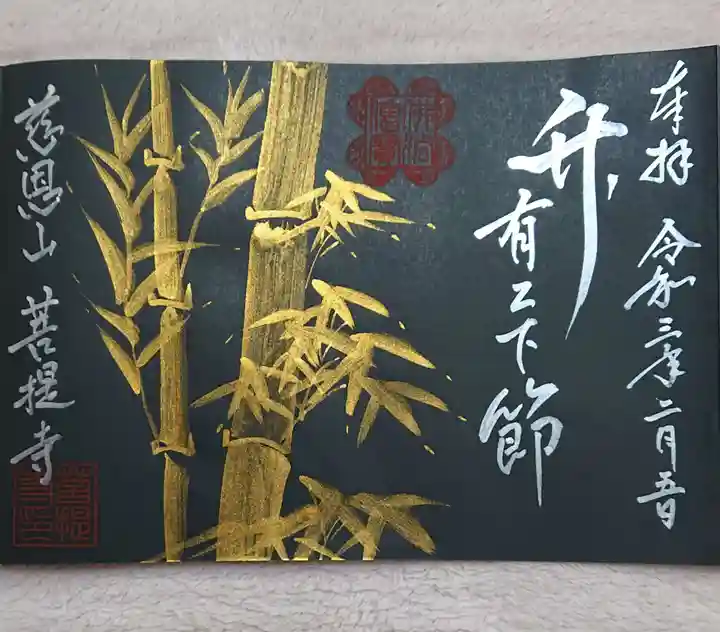 奉拝 令和三年二月五日
竹有上下節
慈恩山 菩提寺